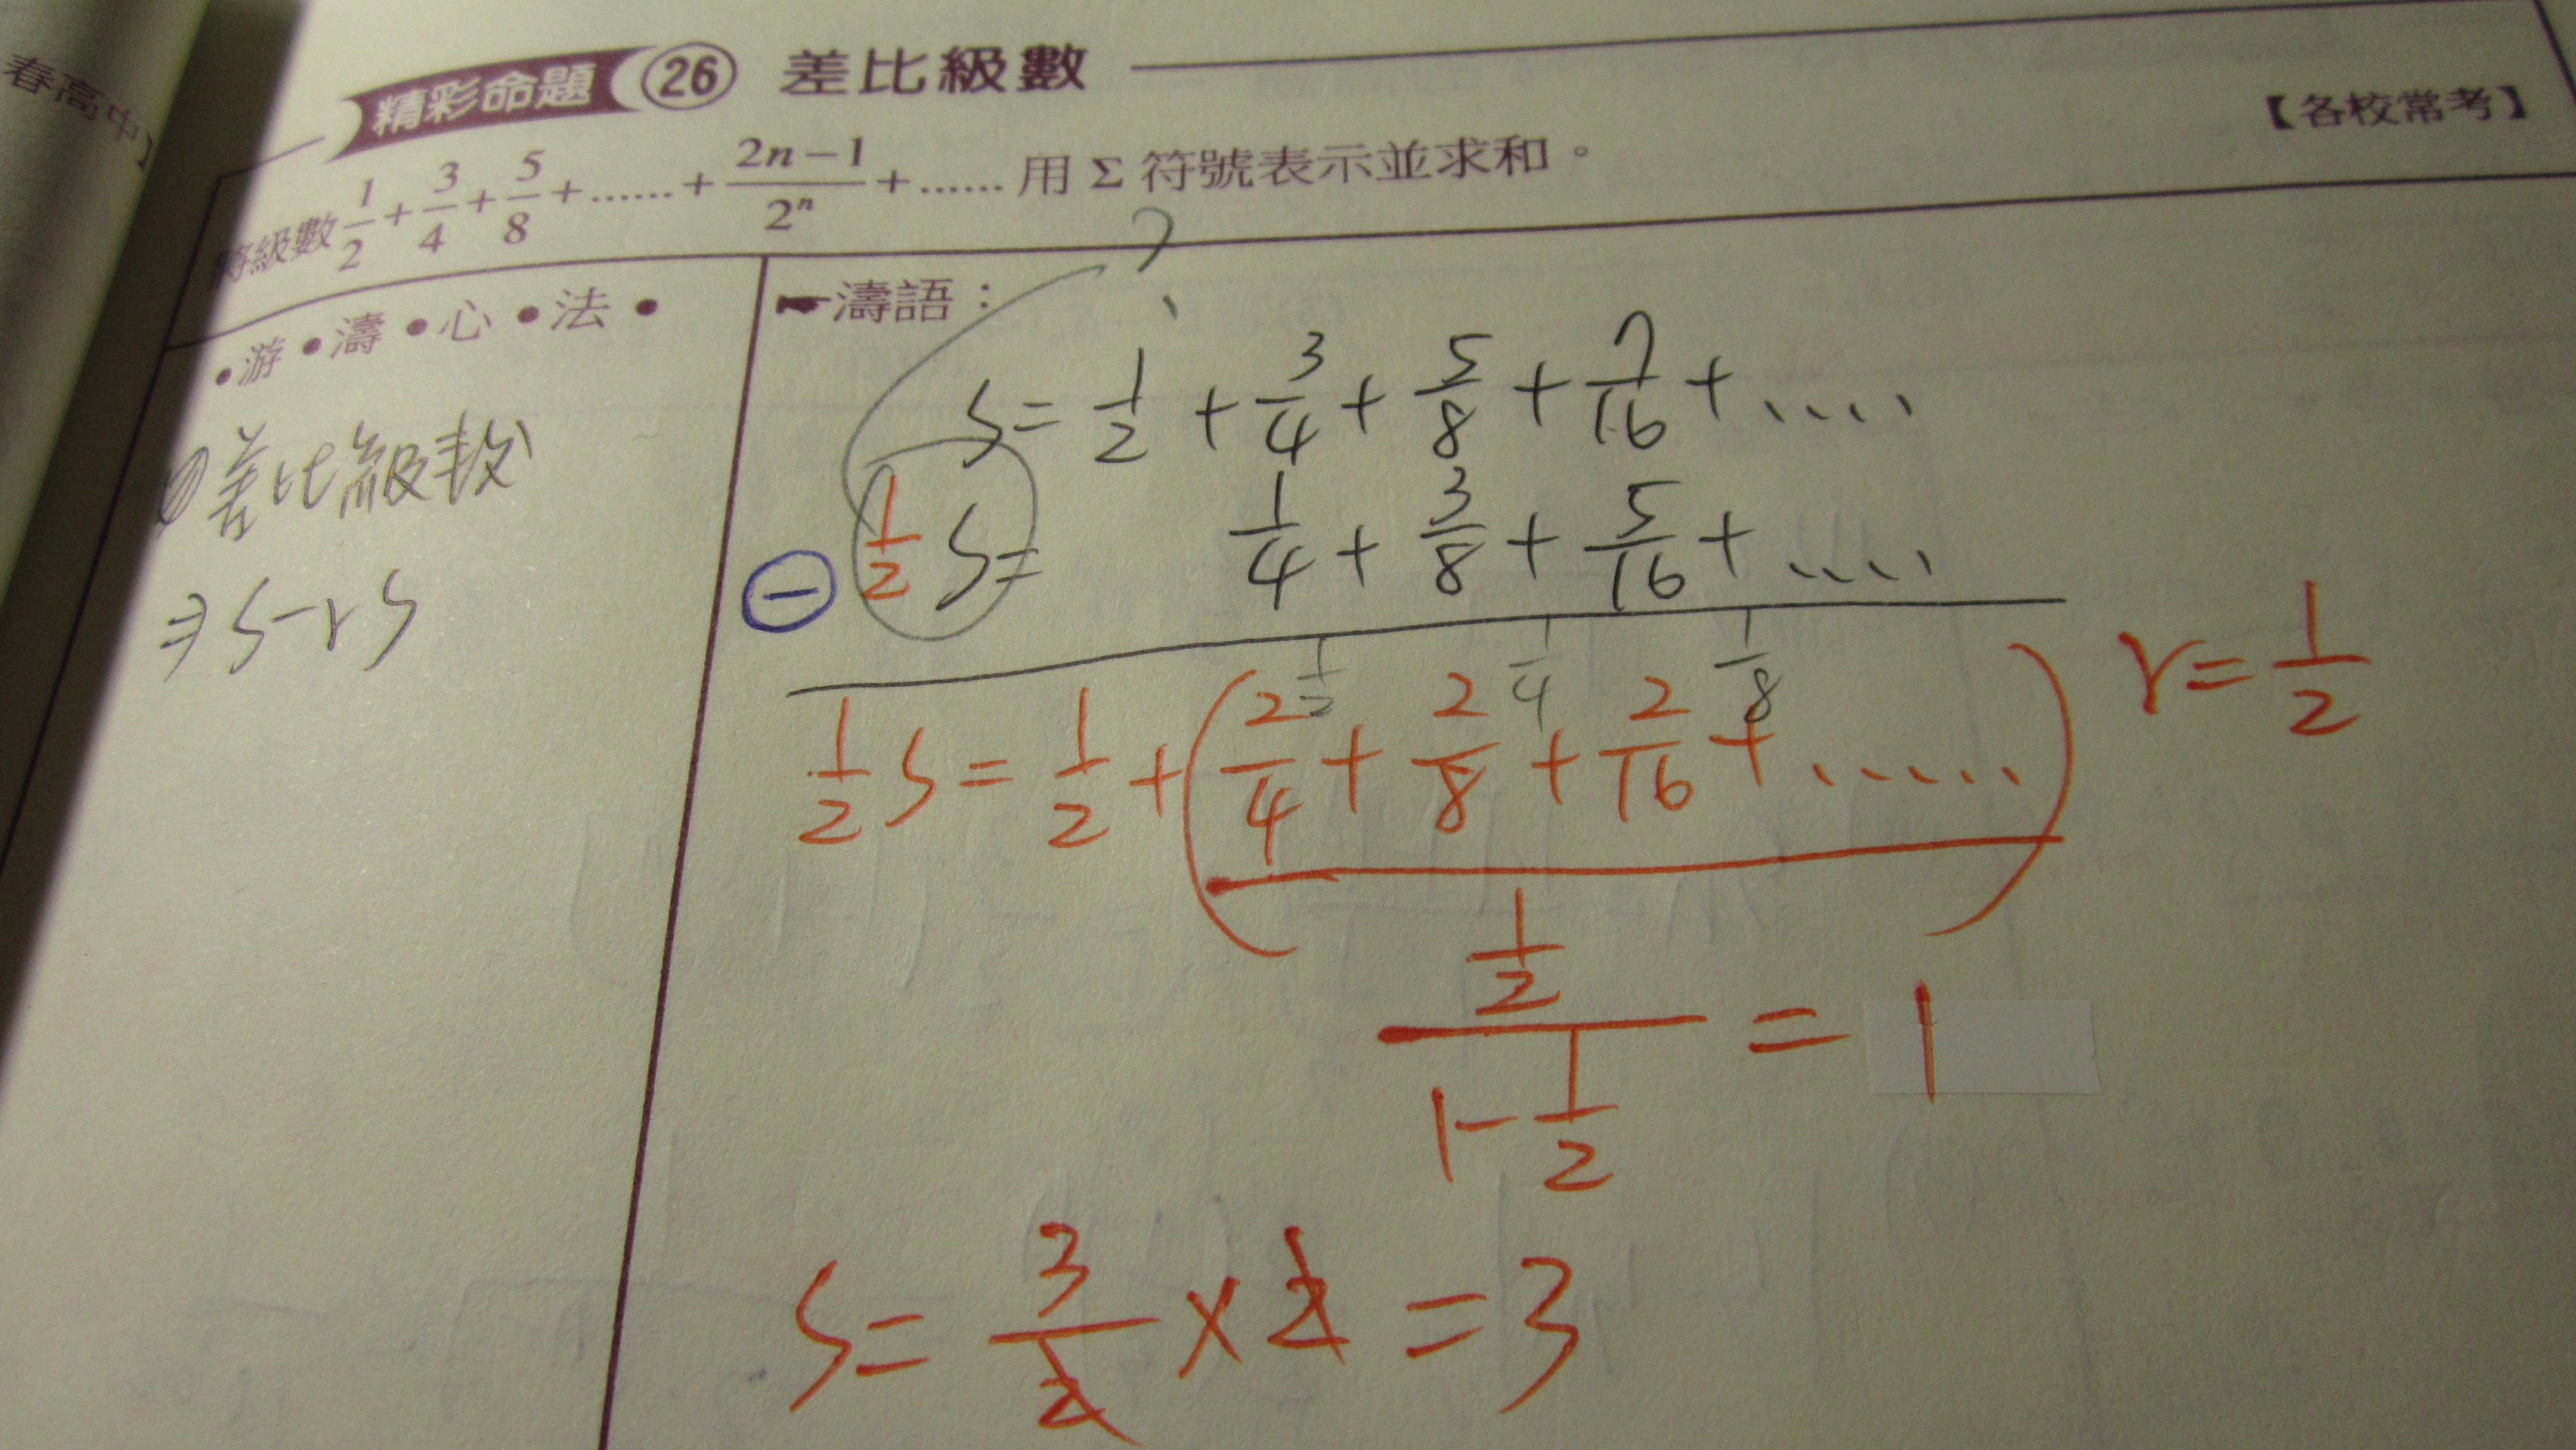 春高中】
精彩命題 26 差比級數
【各校常考】
將級數 1/2 + 3/4 + 5/8 + …… + (2n−1)/2ⁿ + …… 用 Σ 符號表示並求和。
•游•濤•心•法•
差比級数
⇒ S-rS
濤語：
?
S= 1/2 + 3/4 + 5/8 + 7/16 + ....
⊖ 1/2 S= 1/4 + 3/8 + 5/16 + ....
1/2 1/4 1/8
1/2 S = 1/2 + ( 2/4 + 2/8 + 2/16 + ...... ) r= 1/2
(1/2)/(1-1/2) = 1
S= 3/2 × 2 = 3